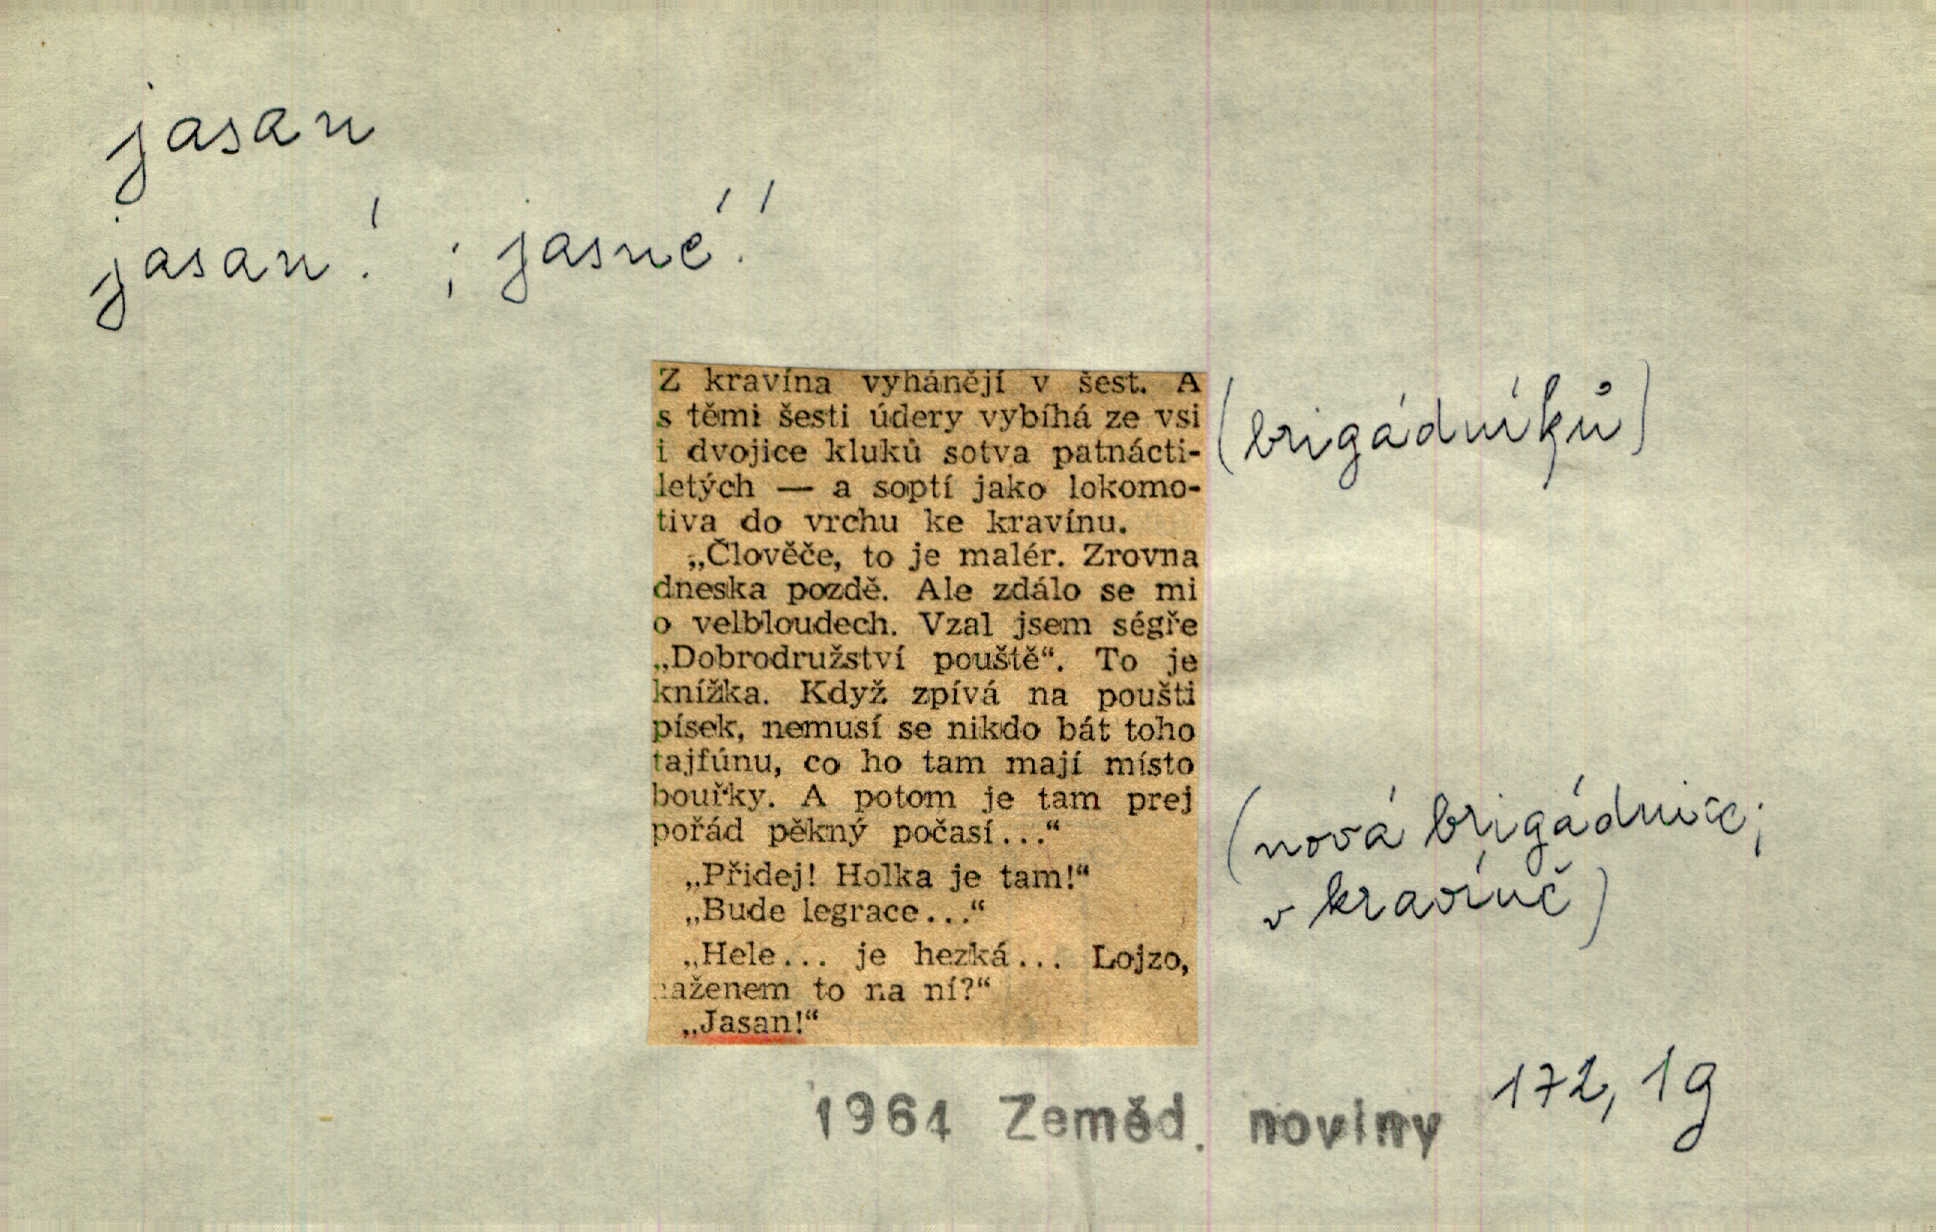 jasan
jasan! ; jasné!
Z kravína vyhánějí v šest. A
s těmi šesti údery vybíhá ze vsi
i dvojice kluků sotva patnácti-
letých — a soptí jako lokomo-
tiva do vrchu ke kravínu.
(brigádníků)
„Člověče, to je malér. Zrovna
dneska pozdě. Ale zdálo se mi
o velbloudech. Vzal jsem ségře
„Dobrodružství pouště“. To je
knížka. Když zpívá na poušti
písek, nemusí se nikdo bát toho
tajfúnu, co ho tam mají místo
bouřky. A potom je tam prej
pořád pěkný počasí...“
„Přidej! Holka je tam!“
„Bude legrace...“
(nová brigádnice;
v kravíně)
„Hele... je hezká... Lojzo,
naženem to na ní?“
„Jasan!“
1964 Zeměd. noviny 172, 1g